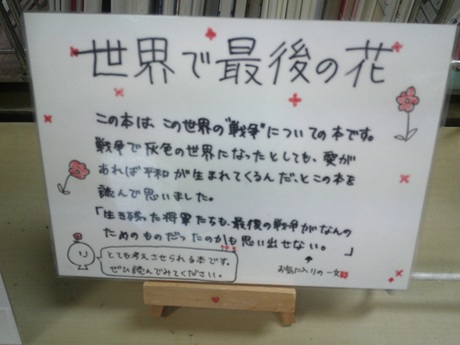 世界で最後の花
この本は、この世界の"戦争"についての本です。
戦争で灰色の世界になったとしても、愛が
あれば平和が生まれてくるんだ、とこの本を
読んで思いました。
「生き残った将軍たちも、最後の戦争がなんの
ためのものだったのかも思い出せない。」
お気に入りの一文
とても考えさせられる本です。
ぜひ読んでみてください。